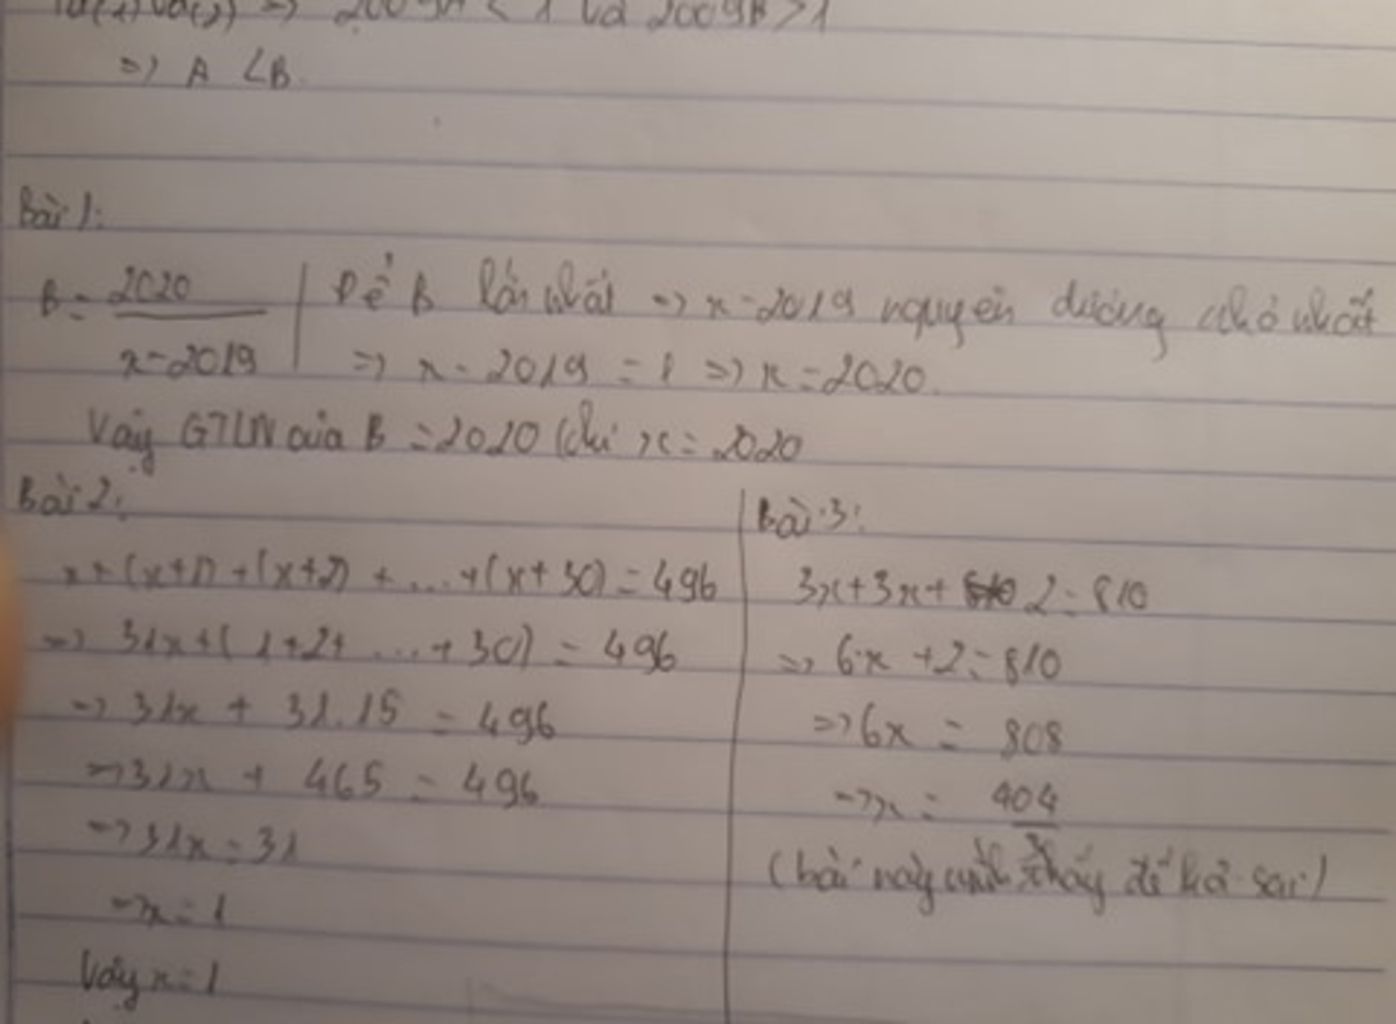 => 2009A < 1 và 2009B > 1
=> A < B.
Bài 1:
B = 2020 / x - 2019
Để B lớn nhất => x - 2019 nguyên dương nhỏ nhất
=> x - 2019 = 1 => x = 2020.
Vậy GTLN của B = 2020 khi x = 2020
Bài 2:
x + (x+1) + (x+2) + ... + (x+30) = 496
=> 31x + (1+2+ ... + 30) = 496
=> 31x + 31.15 = 496
=> 31x + 465 = 496
=> 31x = 31
=> x = 1
Vậy x = 1
Bài 3:
3x + 3x + 2 = 810
=> 6x + 2 = 810
=> 6x = 808
=> x = 404 / 3
(bài này mình thấy đề sai)